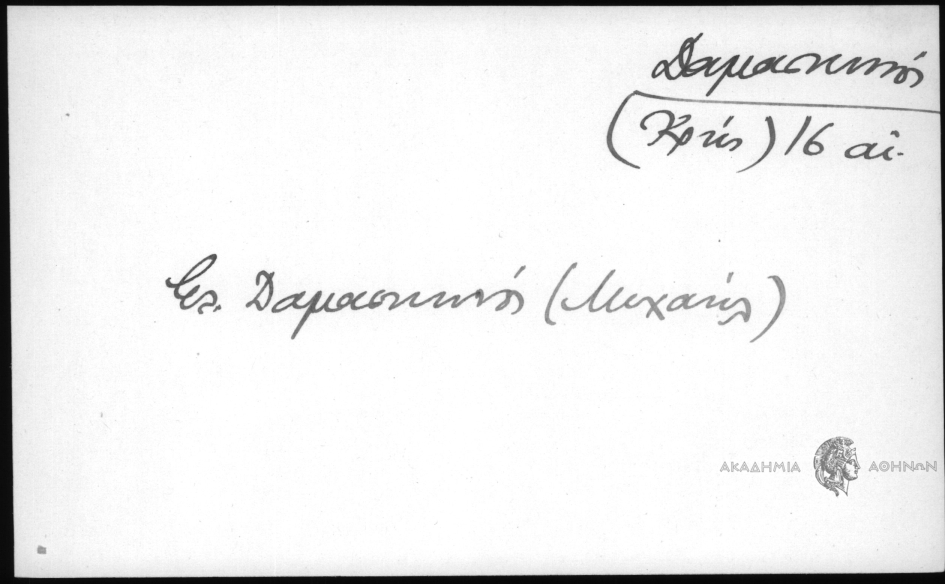 Δαμασκηνός
(Κρής) 16 αἰ.
Βλ. Δαμασκηνός (Μιχαήλ)
ΑΚΑΔΗΜΙΑ ΑΘΗΝΩΝ